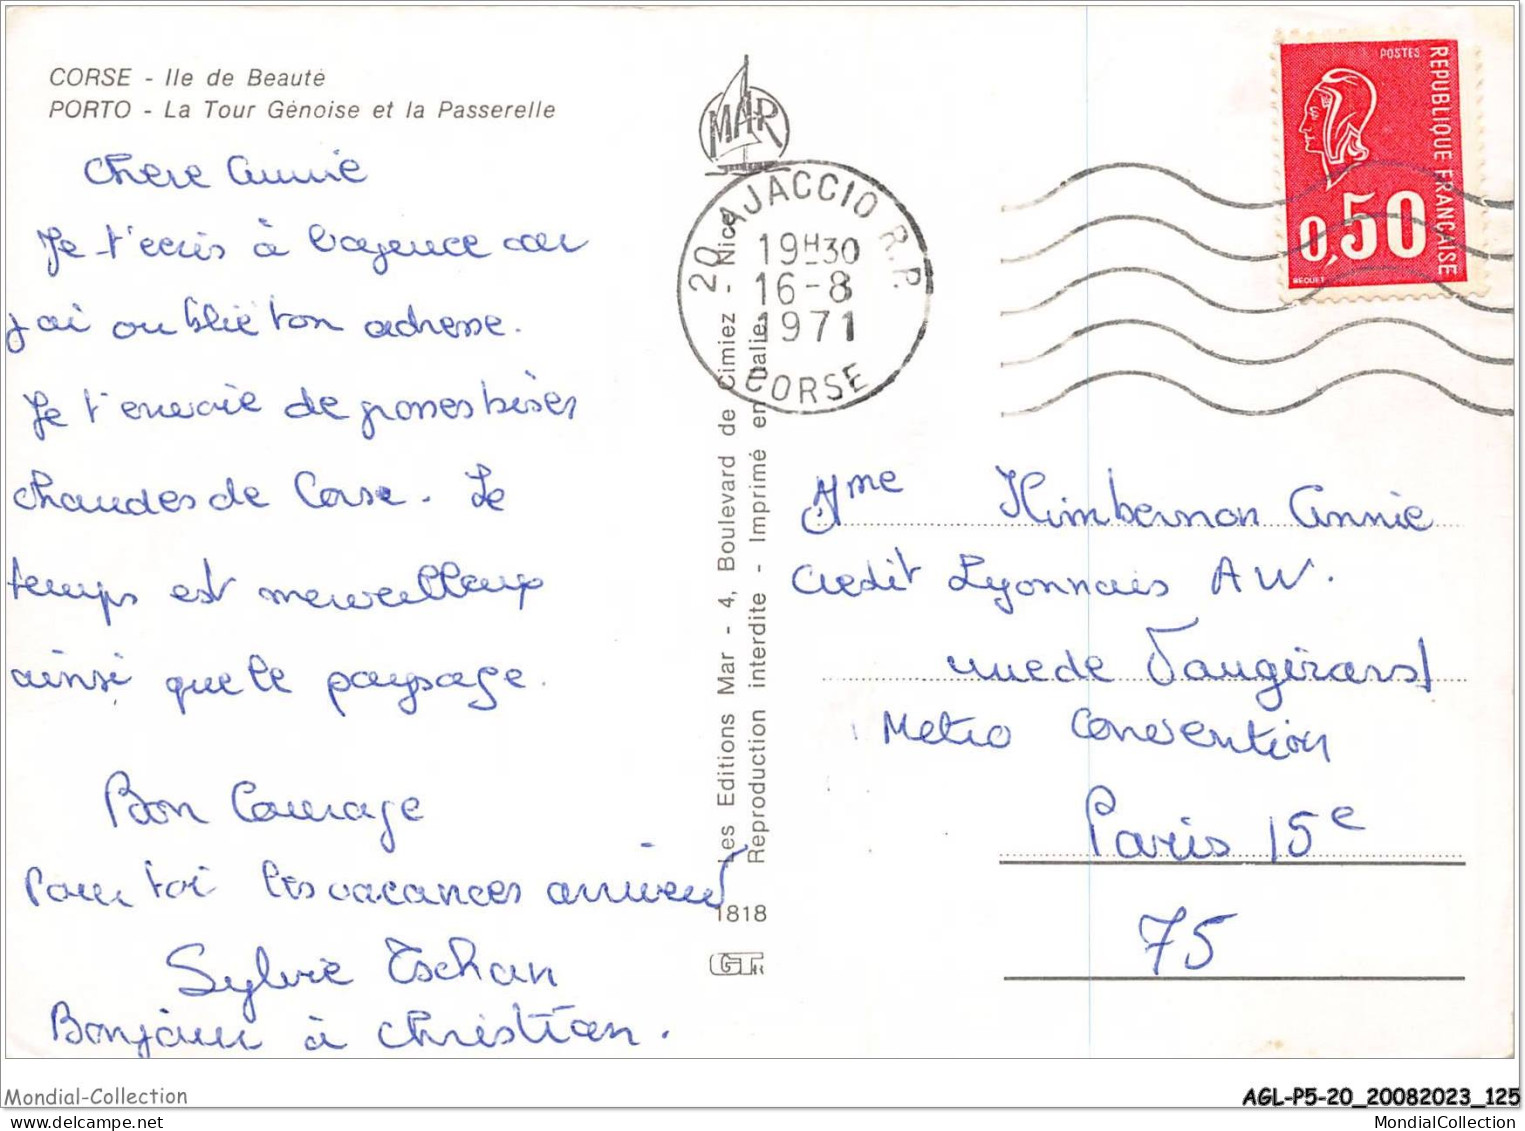 CORSE - Ile de Beauté
PORTO - La Tour Génoise et la Passerelle
Chere Annie
Je t'ecris à l'agence car
j'ai oublié ton adresse.
Je t'envoie de grosses bises
chaudes de Corse. Le
temps est merveilleux
ainsi que le paysage.
Bon Courage
Pour toi les vacances arrivent
Sylvie Tschan
Bonjour à Christian.
MAR
Les Editions Mar - 4, Boulevard de Cimiez - Nice
Reproduction interdite - Imprimé en Italie
1818
GT
20 AJACCIO R.P.
19H30
16-8
1971
CORSE
POSTES
REPUBLIQUE FRANÇAISE
0,50
BEQUET
Mme Kimbernon Annie
Credit Lyonnais AW.
rue de Vaugirard
Metro Convention
Paris 15e
75
Mondial-Collection
AGL-P5-20_20082023_125
MondialCollection